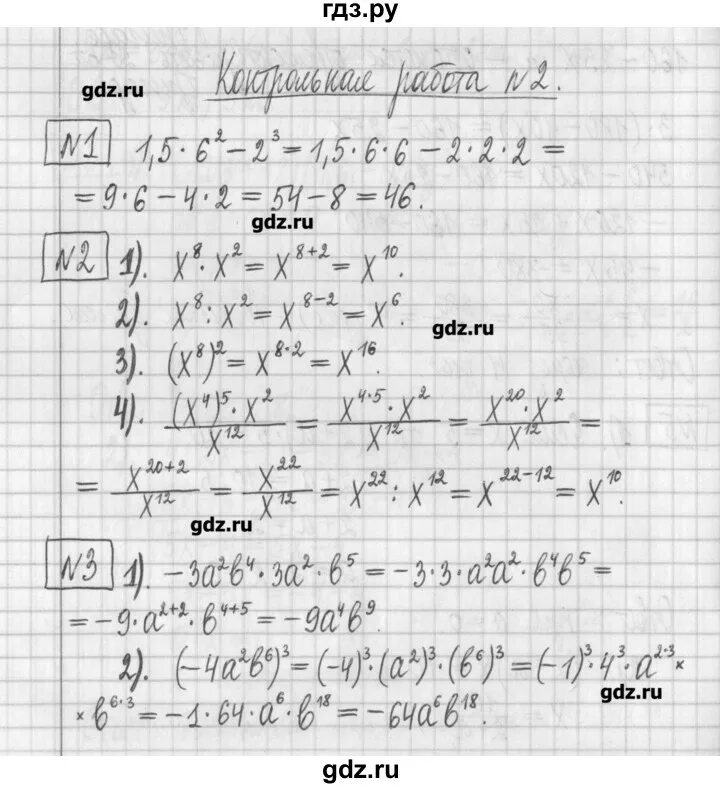 гдз.ру
Контрольная работа №2.
gdz.ru
№1 1,5·6² − 2³ = 1,5·6·6 − 2·2·2 =
= 9·6 − 4·2 = 54 − 8 = 46.
gdz.ru
№2 1). x⁸·x² = x⁸⁺² = x¹⁰.
2). x⁸:x² = x⁸⁻² = x⁶.
gdz.ru
3). (x⁸)² = x⁸·² = x¹⁶.
4). (x⁴)⁵·x²/x¹² = x⁴·⁵·x²/x¹² = x²⁰·x²/x¹² =
= x²⁰⁺²/x¹² = x²²/x¹² = x²²:x¹² = x²²⁻¹² = x¹⁰.
gdz.ru
№3 1). −3a²b⁴·3a²·b⁵ = −3·3·a²a²·b⁴b⁵ =
= −9·a²⁺²·b⁴⁺⁵ = −9a⁴b⁹.
2). (−4a²b⁶)³ = (−4)³·(a²)³·(b⁶)³ = (−1)³·4³·a²·³ ×
gdz.ru
× b⁶·³ = −1·64·a⁶·b¹⁸ = −64a⁶b¹⁸.
gdz.ru